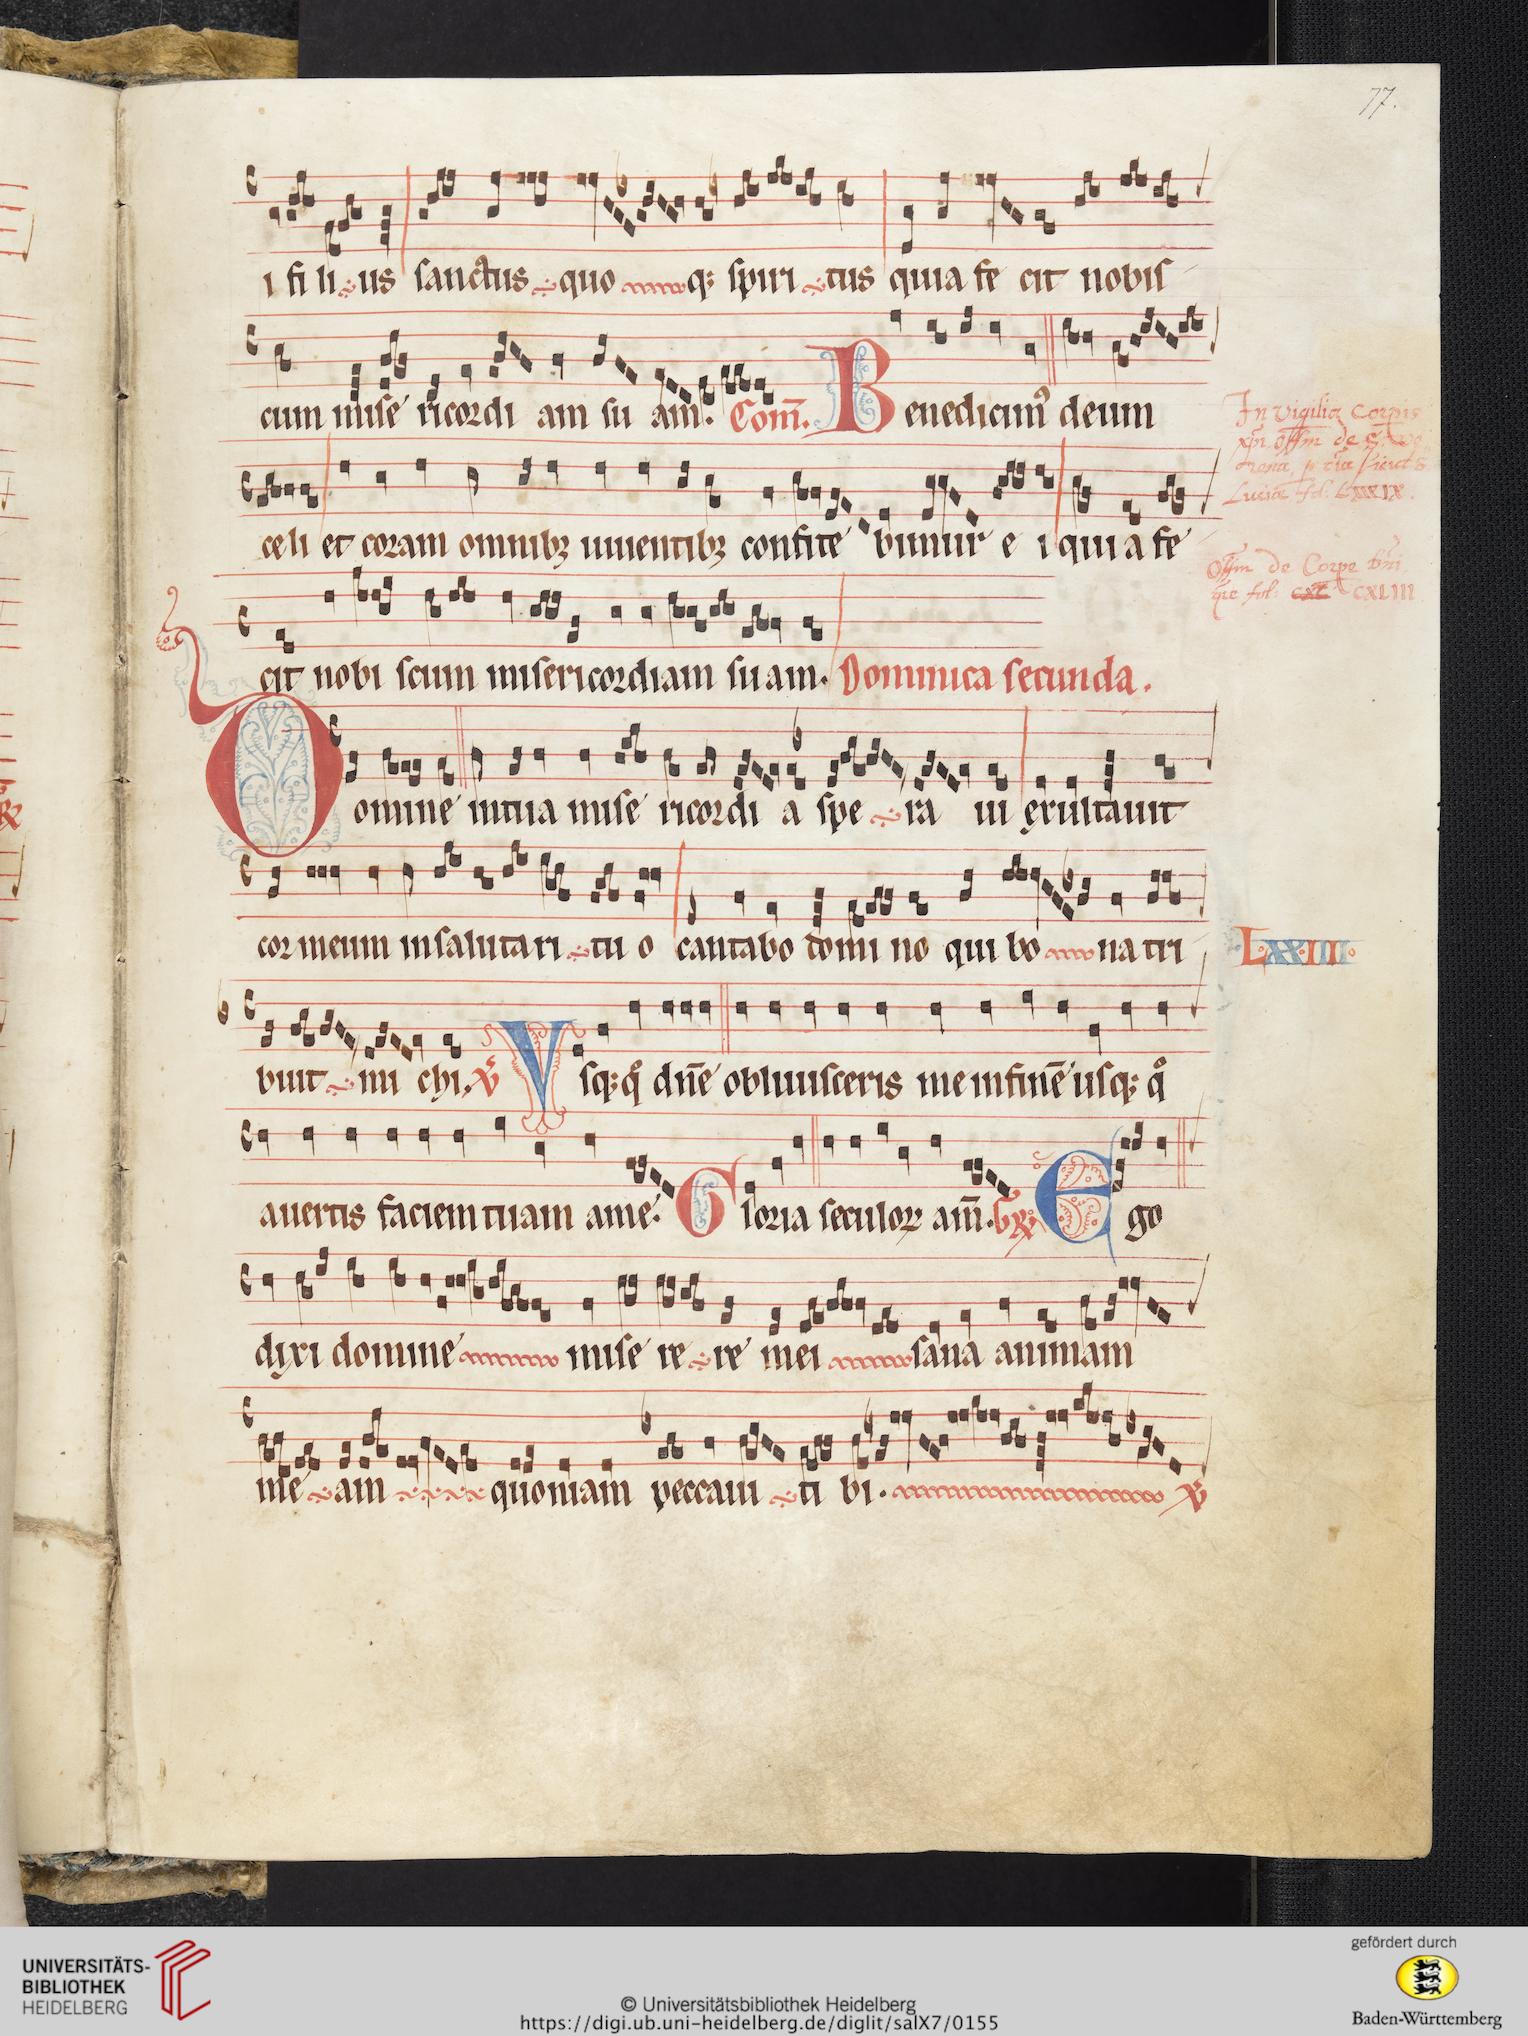 77.
i fi li us sanctus quo q; spiri tus quia fe cit nobis
cum mise ricordi am su am. Com̄. Benedicimꝰ deum
celi et coram omnibꝫ uiuentibꝫ confite bimur e i quia fe
cit nobi scum misericordiam suam. Dominica secunda.
Domine in tua mise ricordi a spe ra ui exultauit
cor meum in salutari tu o cantabo domi no qui bo na tri
LXXIIII.
buit mi chi. V̄ Vsq; q̊ dn̄e obliuisceris me in finē usq; q̊
auertis faciem tuam a me. Gloria seculoꝝ am̄. Gꝶ Ego
dixi domine mise re re mei sana animam
me am quoniam peccaui ti bi. V̄
In vigilia Corpis
xp̄i offm̄ de S.
Lucia fol. LXXXIX.
Offm̄ de Corpe
fol: CXL CXLIII
UNIVERSITÄTS-
BIBLIOTHEK
HEIDELBERG
© Universitätsbibliothek Heidelberg
https://digi.ub.uni-heidelberg.de/diglit/salX7/0155
gefördert durch
Baden-Württemberg